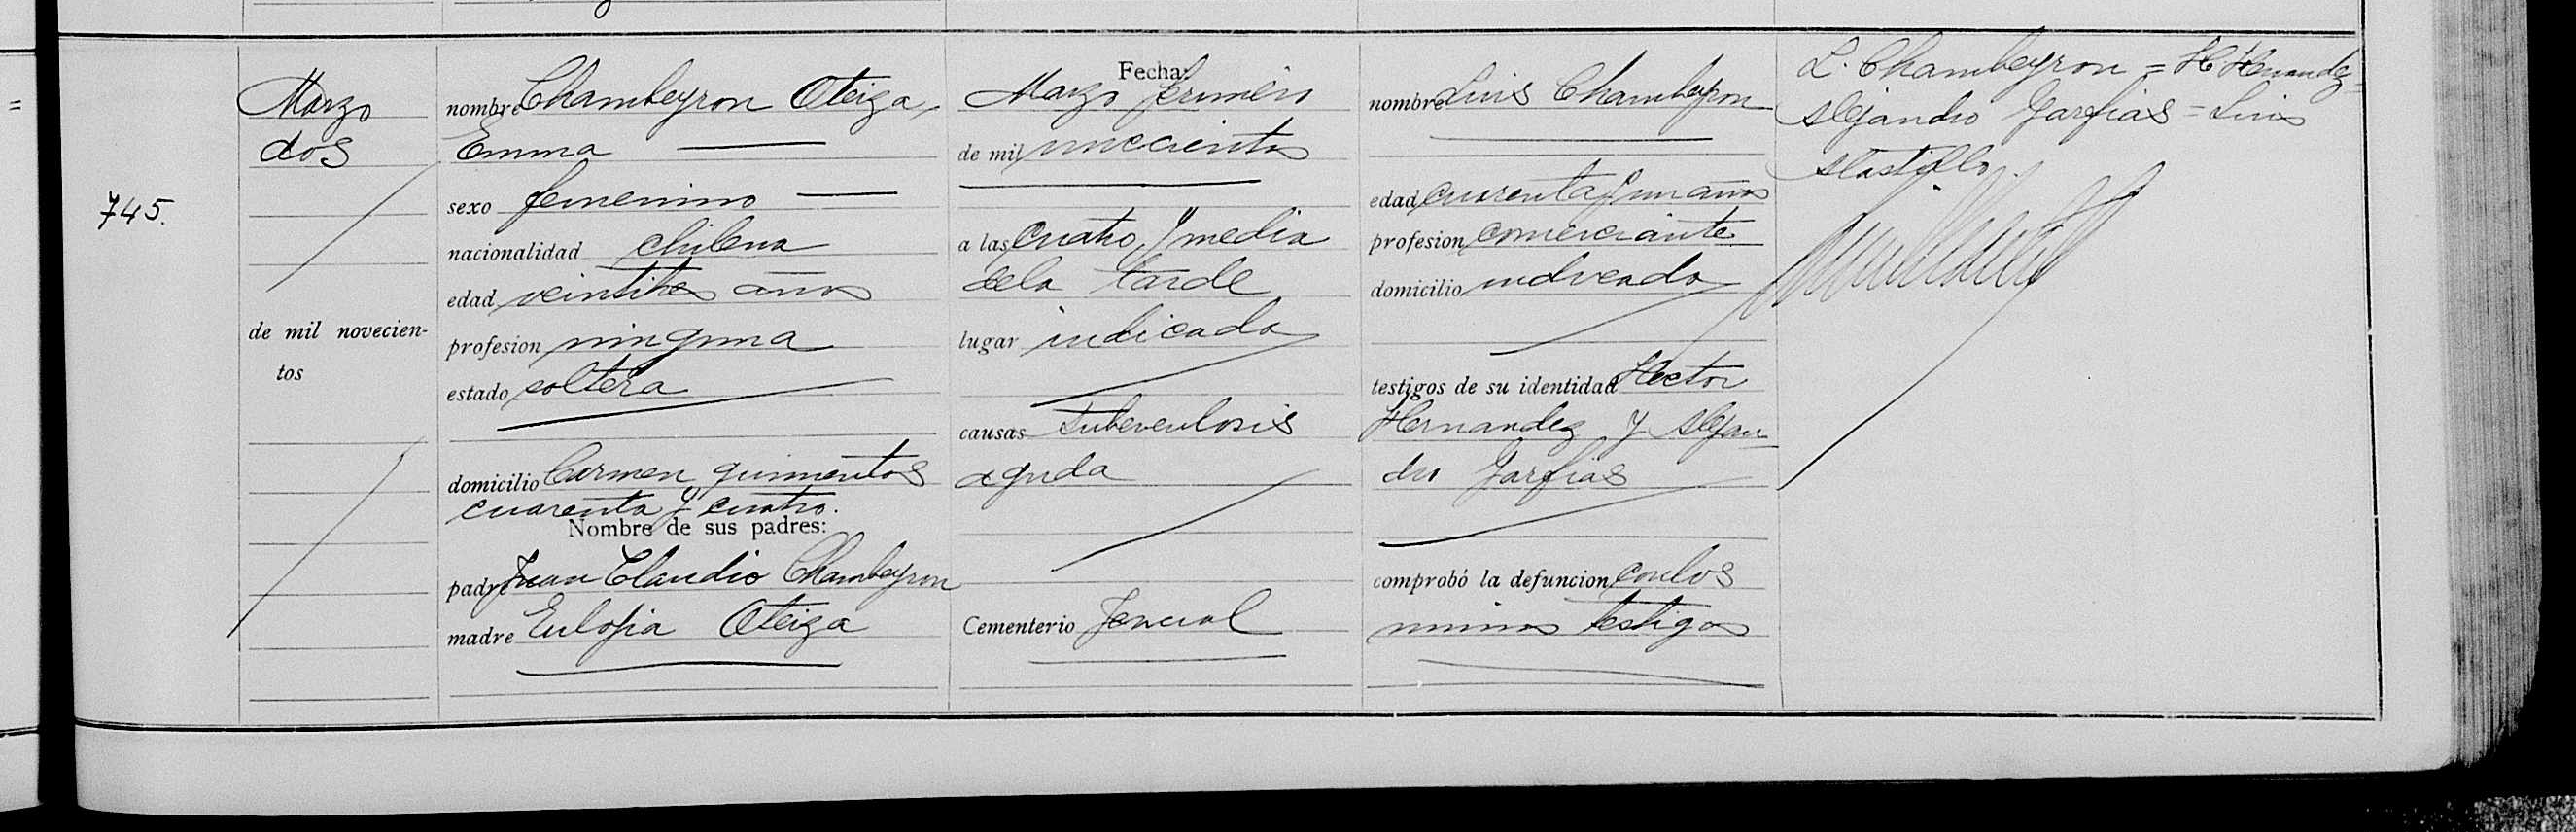 745.
Marzo
dos
de mil novecien-
tos
nombre Chambeyron Oteiza,
Emma
sexo femenino
nacionalidad chilena
edad veintitres años
profesion ninguna
estado soltera
domicilio Carmen quinientos
cuarenta y cuatro.
Nombre de sus padres:
padre Juan Claudio Chambeyron
madre Eulojia Oteiza
Fecha:
Marzo primero
de mil novecientos
a las cuatro y media
de la tarde
lugar indicado
causas Tuberculosis
aguda
Cementerio Jeneral
nombre Luis Chambeyron
edad cuarenta y un años
profesion comerciante
domicilio indicado
testigos de su identidad Hector
Hernandez y Alejan
dro Garfias
comprobó la defuncion con los
mismos testigos
L. Chambeyron = H Hernandez =
Alejandro Garfias = Luis